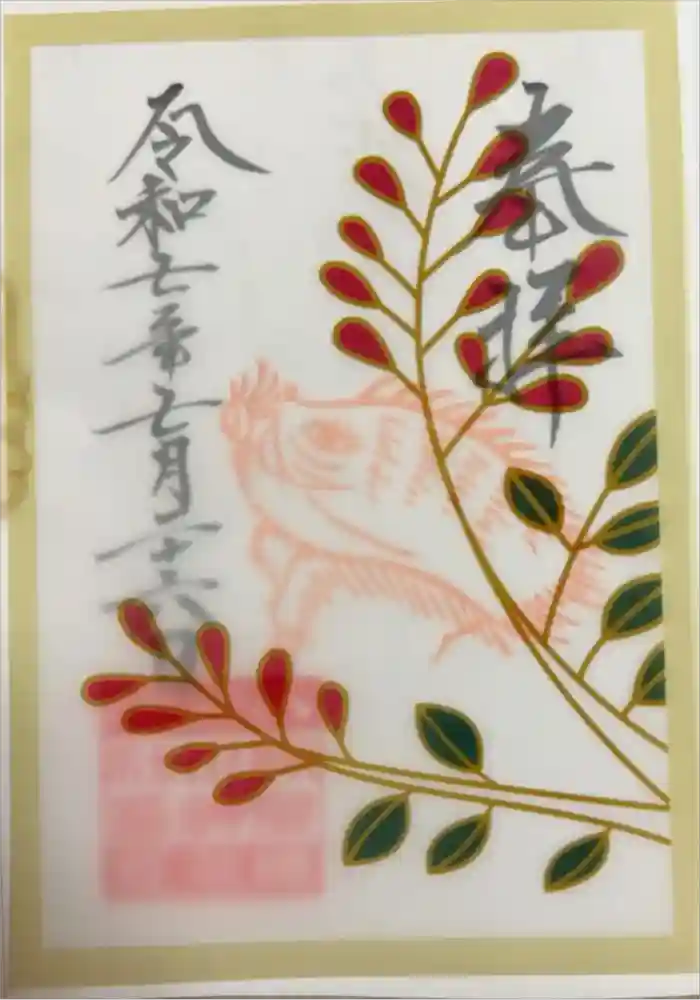 奉拝
令和七年七月二十六日